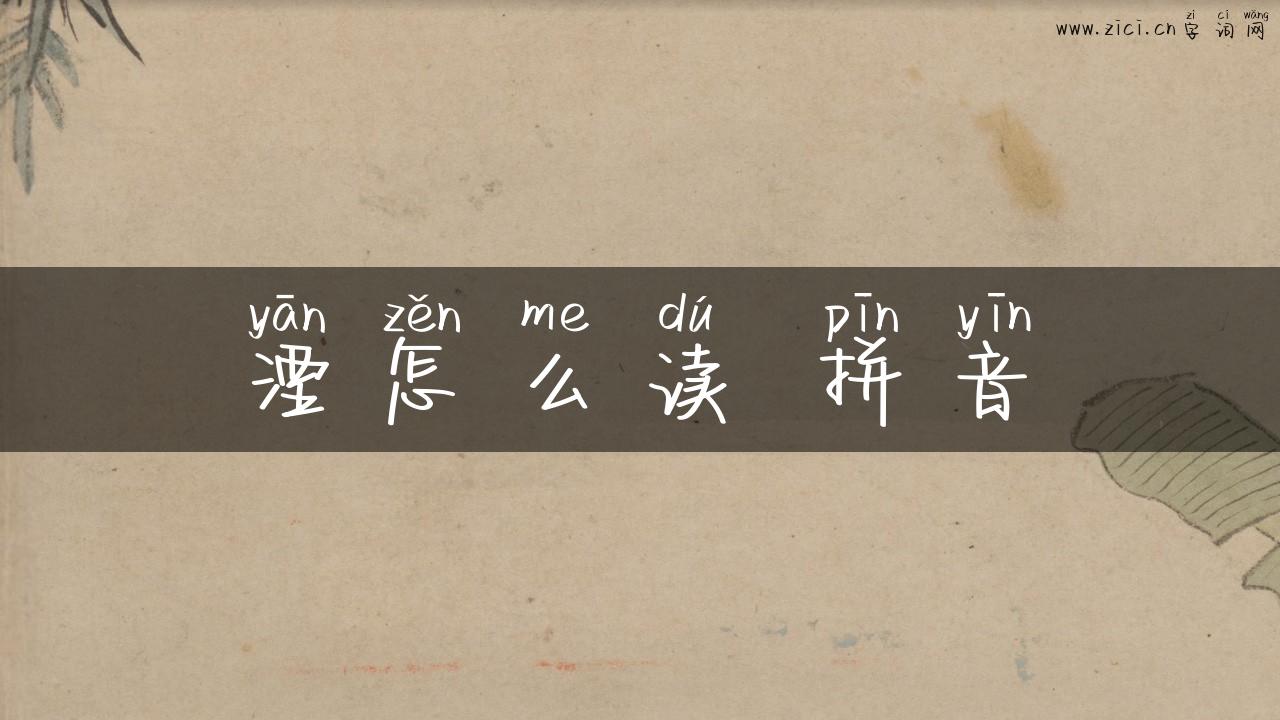 zì cí wǎng
www.zici.cn 字词网
yān zěn me dú pīn yīn
湮怎么读 拼音